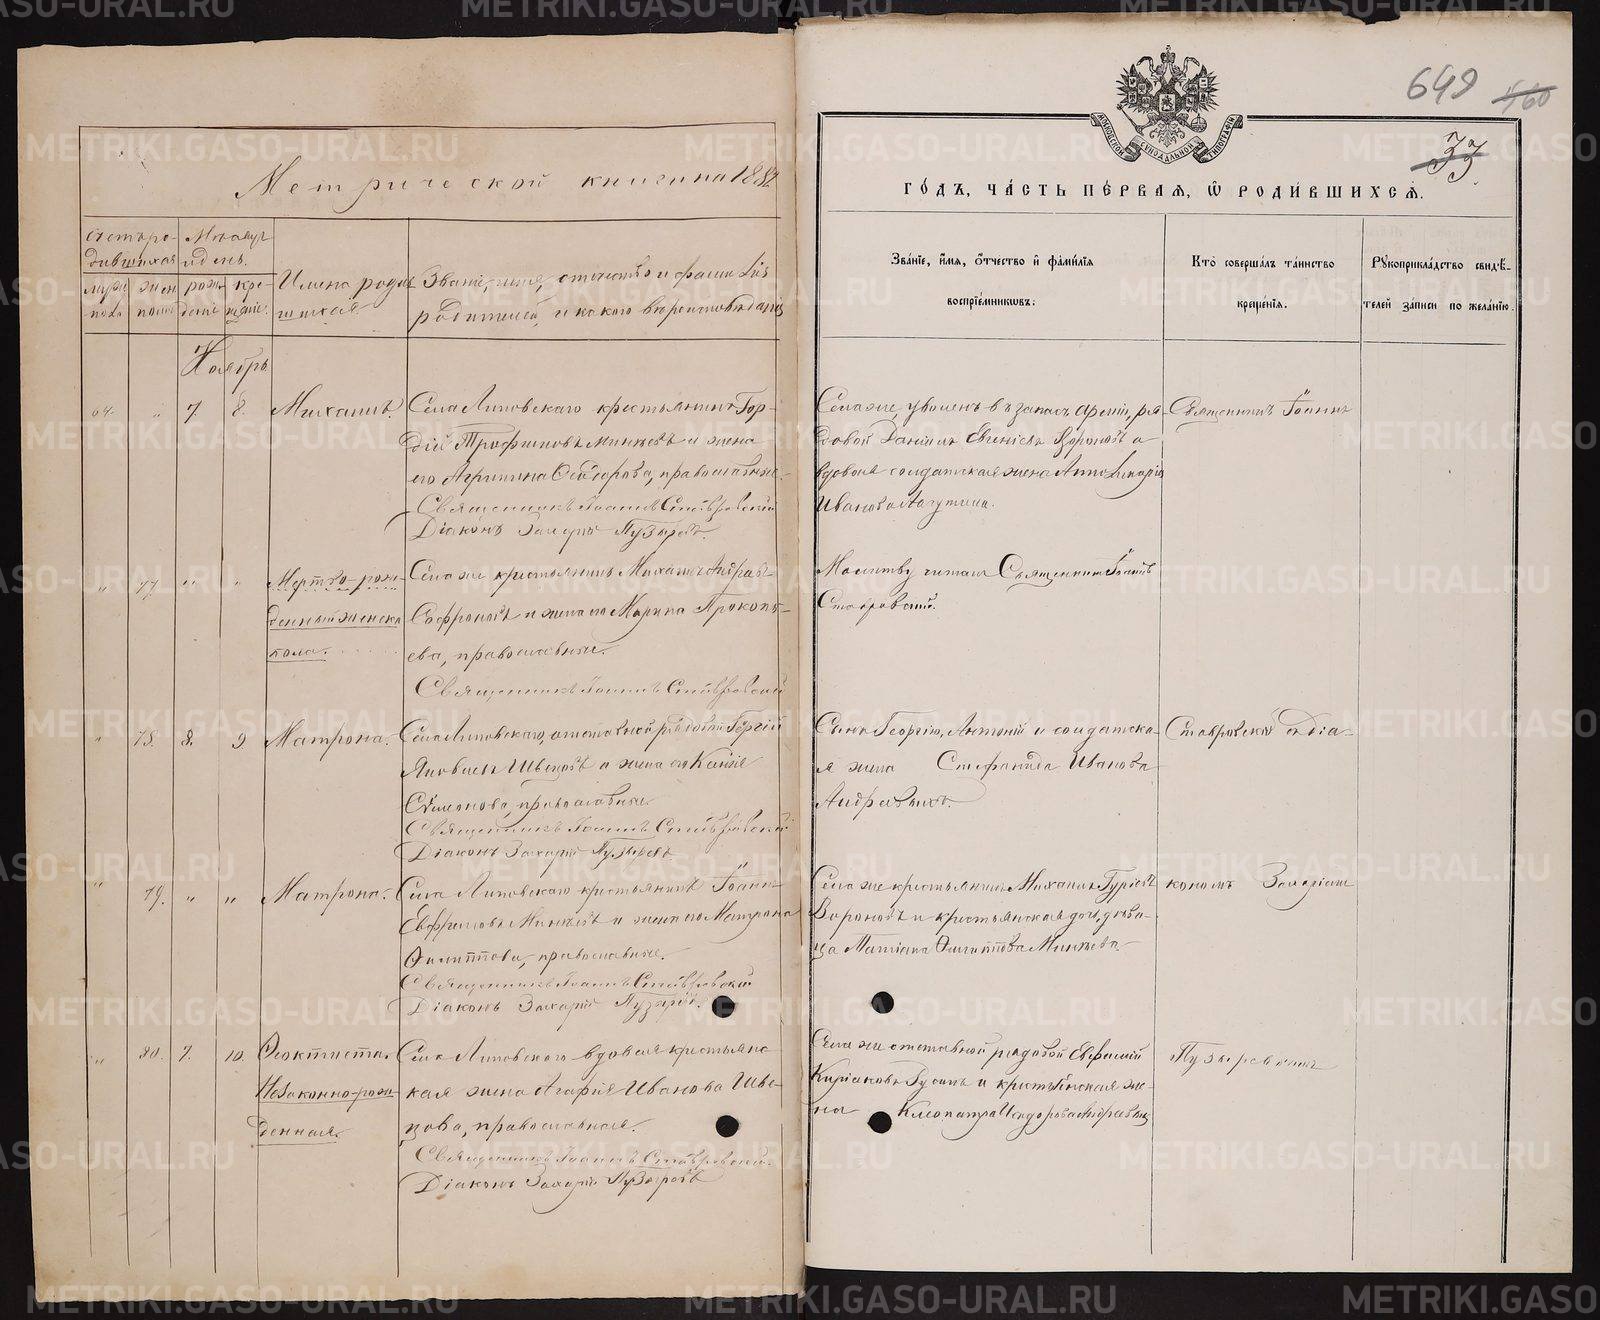 Метрической книги на 1882
Счетъ ро-
дившихся
Мѣсяцъ
и день.
муж.
пола
жен.
пола
рож-
денiе
кре-
щенiе.
Имена родив
шихся
Званiе, имя, отчество и фамилiя
родителей, и какого вѣроисповѣданiя
Ноябрь
64. " 7. 8. Михаилъ.
Села Липовскаго крестьянинъ Гор-
дiй Трофимовъ Минѣевъ и жена
его Агрипина Ѳедорова, православные.
Священникъ Iоаннъ Ставровскiй
Дiаконъ Захарiй Пузыревъ.
" 77 " " Мертво-рож-
денный женска
пола.
Села же крестьянинъ Михаилъ
Софроновъ и жена его Марина Прокопь-
ева, православные.
Священникъ Iоаннъ Ставровскiй
" 78. 8. 9 Матрона.
Села Липовскаго, отставной рядовой Георгiй
Яковлевъ Швецовъ и жена его Ксенiя
Симонова, православные
Священникъ Iоаннъ Ставровскiй
Дiаконъ Захарiй Пузыревъ
" 79. " " Матрона.
Села Липовскаго крестьянинъ Iоаннъ
Евфимовъ Минѣевъ и жена его Матрона
Филиппова, православные.
Священникъ Iоаннъ Ставровскiй
Дiаконъ Захарiй Пузыревъ.
" 80. 7. 10. Феоктиста.
Незаконно-рож-
денная.
Села Липовскаго вдовая крестьянс
кая жена Агафiя Иванова Шве-
цова, православная.
Священникъ Iоаннъ Ставровскiй.
Дiаконъ Захарiй Пузыревъ
649 460
33
МОСКОВСКОЙ СѴНОДАЛЬНОЙ ТИПОГРАФIИ
ГОДЪ, ЧАСТЬ ПЕРВАЯ, Ѡ РОДИВШИХСЯ.
Званiе, имя, отчество и фамилiя
воспрiемниковъ:
Кто совершалъ таинство
крещенiя.
Рукоприкладство свидѣ-
телей записи по желанiю.
Села же уволенъ въ запасъ армiи, ря-
довой Данiилъ Вороновъ а
вдовая солдатская жена Апполинарiя
Иванова Лагутина.
Священникъ Iоаннъ
Молитву читалъ Священникъ Iоаннъ
Ставровскiй.
Сынъ Георгiю, Антонiй и солдатска-
я жена Стефанида Иванова
Ставровскiй съ дiа-
Села же крестьянинъ Михаилъ Гурiевъ
Вороновъ и крестьянская дочь, дѣви-
ца Татiана Филиппова Минѣева.
кономъ Захарiемъ
Села же отставной рядовой Евфимiй
Кирiаковъ Гусевъ и крестьянская же-
на Клеопатра Исидорова
Пузыревымъ
METRIKI.GASO-URAL.RU